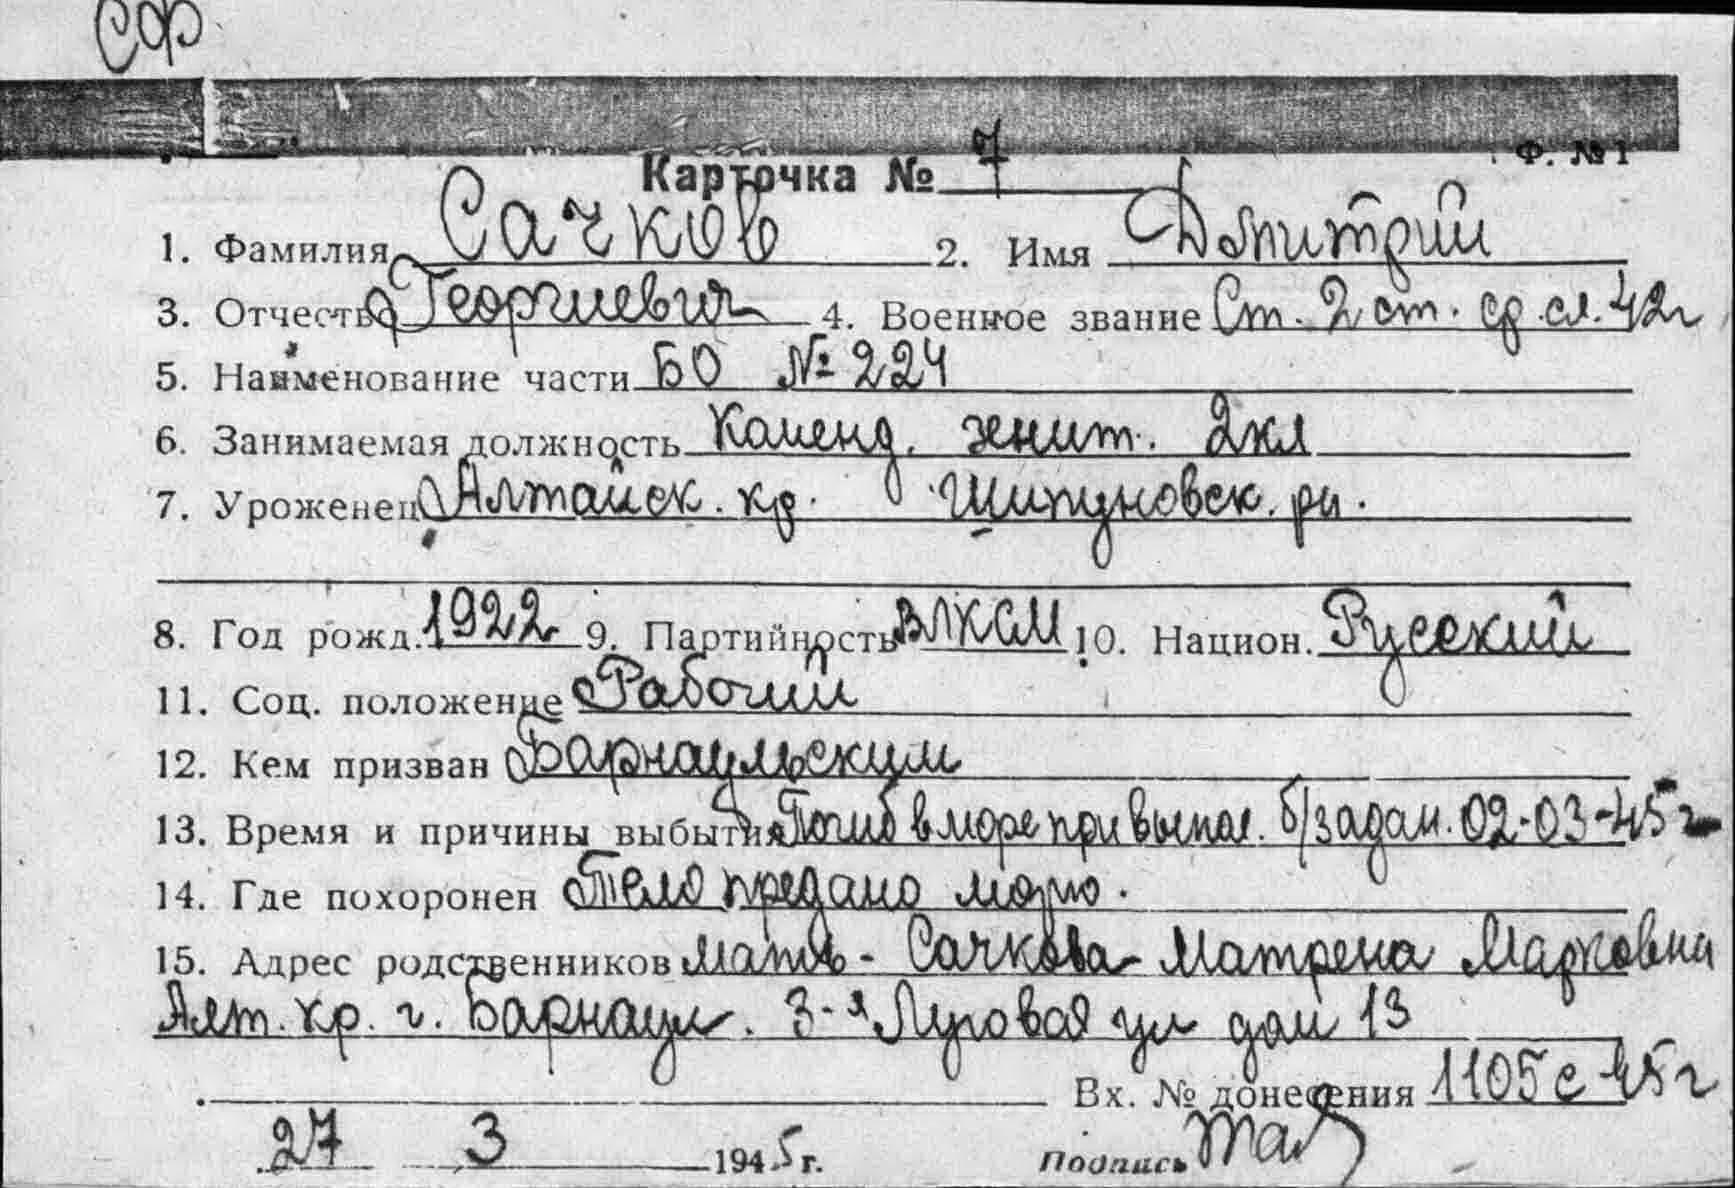 СФ
Ф. № 1
Карточка № 7
1. Фамилия Сачков 2. Имя Дмитрий
3. Отчество Георгиевич 4. Военное звание Ст. 2 ст. ср. сл. 42г
5. Наименование части БО № 224
6. Занимаемая должность Команд. зенит. 2кл
7. Уроженец Алтайск. кр. Шипуновск. рн.
8. Год рожд. 1922 9. Партийность ВЛКСМ 10. Национ. Русский
11. Соц. положение Рабочий
12. Кем призван Барнаульским
13. Время и причины выбытия Погиб в море при выпол. б/задан. 02-03-45г
14. Где похоронен Тело предано морю.
15. Адрес родственников мать - Сачкова Матрена Марковна
Алт. кр. г. Барнаул. 3-я Луговая ул дом 13
Вх. № донесения 1105с 45г
27 3 1945 г. Подпись